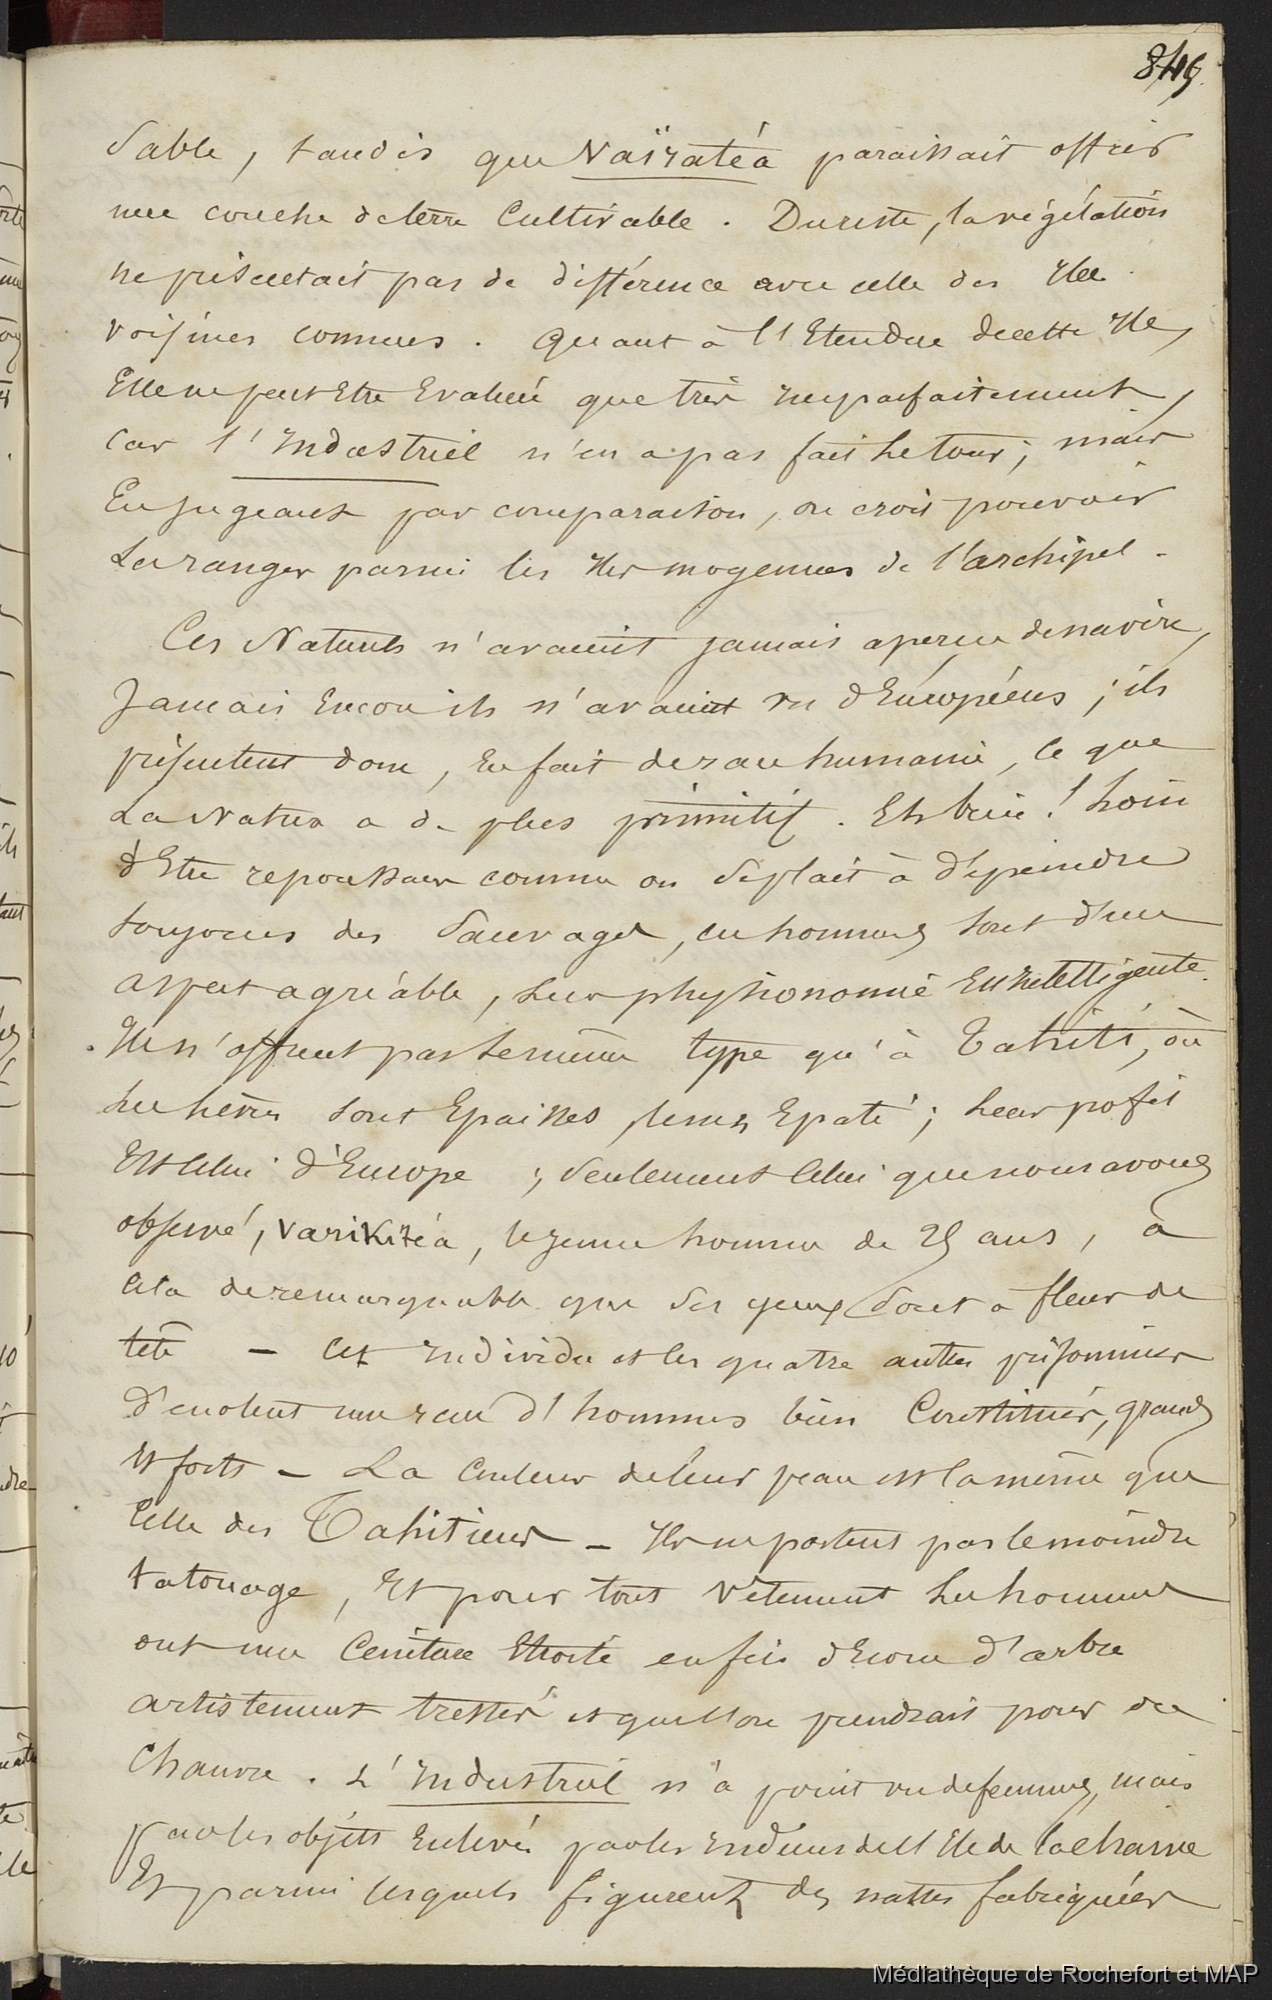 849
Sable, tandis que Naïratéa paraissait offrir
une couche de terre Cultivable. Dureste, la végétation
ne présentait pas de différence avec celle des Iles
voisines connues. Quant à l'Etendue decette Ile,
Elle ne peut Etre Evaluée que très Imparfaitement,
Car l'Industriel n'en a pas fait le tour; mais
En jugeant par comparaison, on croit pouvoir
La ranger parmi les Iles moyennes de l'archipel.
Ces Naturels n'avaient jamais aperçu de navire,
Jamais Encore ils n'avaient vu d'Européens; ils
présentent donc, En fait de race humaine, ce que
La Nature a de plus primitif. Eh bien! Loin
d'Etre repoussans comme on se plait à dépeindre
toujours des Sauvages, ces hommes sont d'un
aspect agréable, leur physionomie Est Intelligente.
Ils n'offrent pas le même type qu'à Tahiti, où
les lèvres sont Epaisses, le nez Epaté; leur profil
Est Celui d'Europe; Seulement Celui que nous avons
observé, Varikitéa, le jeune homme de 25 ans, a
Cela de remarquable que Ses yeux Sont à fleur de
tête – Cet Individu et les quatre autres prisonniers
Dénotent une race d'hommes bien Constitués, grands
Et forts – La Couleur de leur peau est la même que
Celle des Tahitiens – Ils ne portent pas le moindre
tatouage, Et pour tout Vêtement Les hommes
ont une Ceinture Etroite en fils d'Ecorce d'arbre
artistement tressés et que l'on prendrait pour du
Chanvre. L'Industriel n'a point vu de femmes, mais
par les objets Enlevés par les Indiens de l'Ile de la chaine
Et parmi lesquels figurent des nattes fabriquées
Médiathèque de Rochefort et MAP